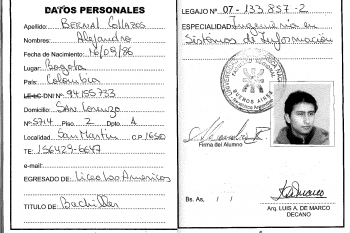 DATOS PERSONALES
Apellido: BERNAL COLLAZOS
Nombres: Alejandro
Fecha de Nacimiento: 16/09/86
Lugar: Bogota
País: Colombia
LE-LC-DNI Nº: 94155733
Domicilio: SAN Lorenzo
Nº 5714 Piso: 2 Dpto. A
Localidad: San Martin C.P. 1650
TE: 156429-6647
e-mail:
EGRESADO DE: Liceo los Americas
TITULO DE: Bachiller
LEGAJO Nº 07-133.857-2
ESPECIALIDAD: Ingeniería en
Sistemas de Información
BUENOS AIRES
Firma del Alumno
Bs. As., / /
Arq. LUIS A. DE MARCO
DECANO